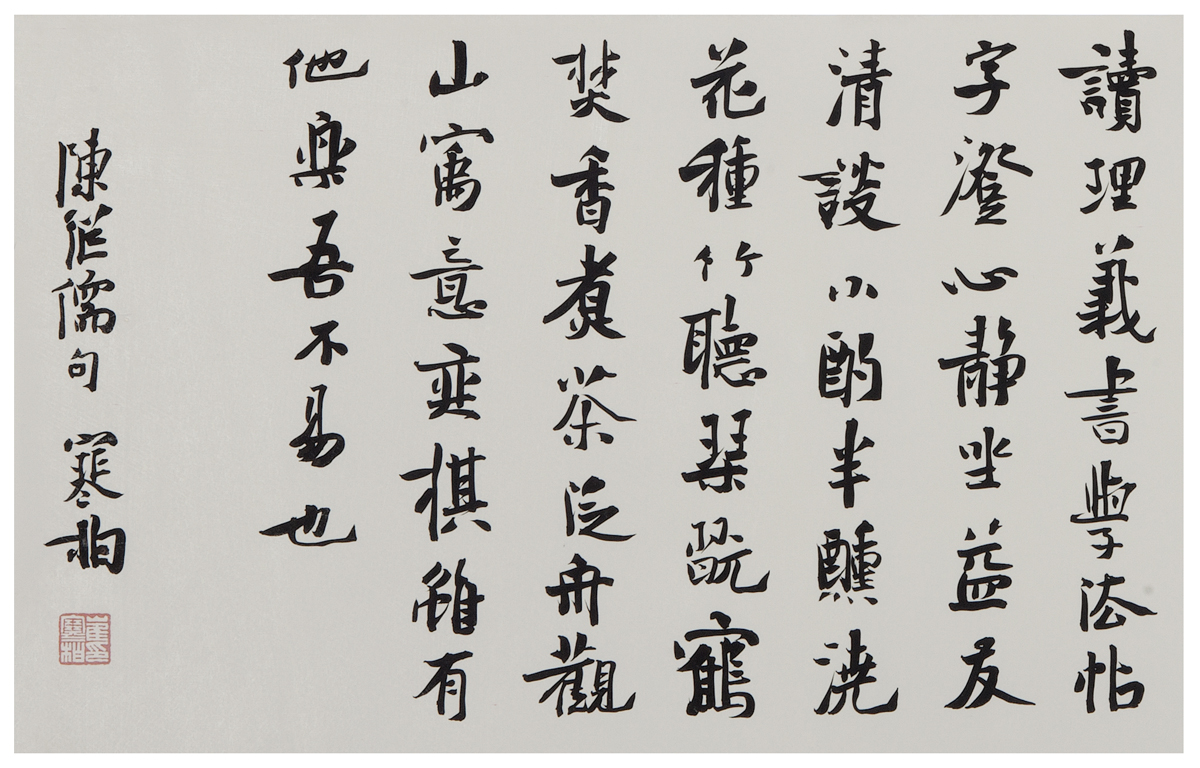 讀理義書學法帖
字澄心靜坐益友
清談小酌半醺澆
花種竹聽琴翫鶴
焚香煮茶泛舟觀
山寓意弈棋雖有
他樂吾不易也
陳繼儒句 寒柏
崔印
寒柏